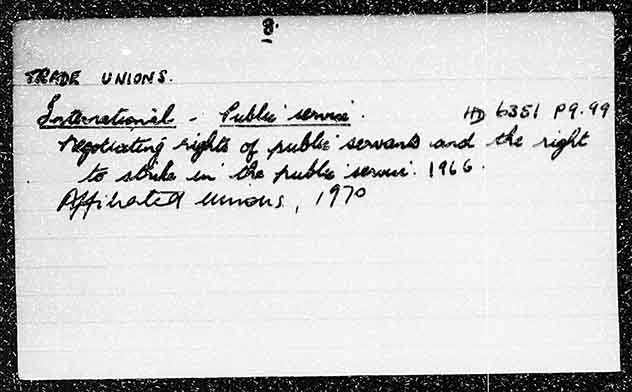 8.
TRADE UNIONS.
International - Public service. HD 6351 P9.99
Negotiating rights of public servants and the right
to strike in the public service. 1966.
Affiliated unions, 1970